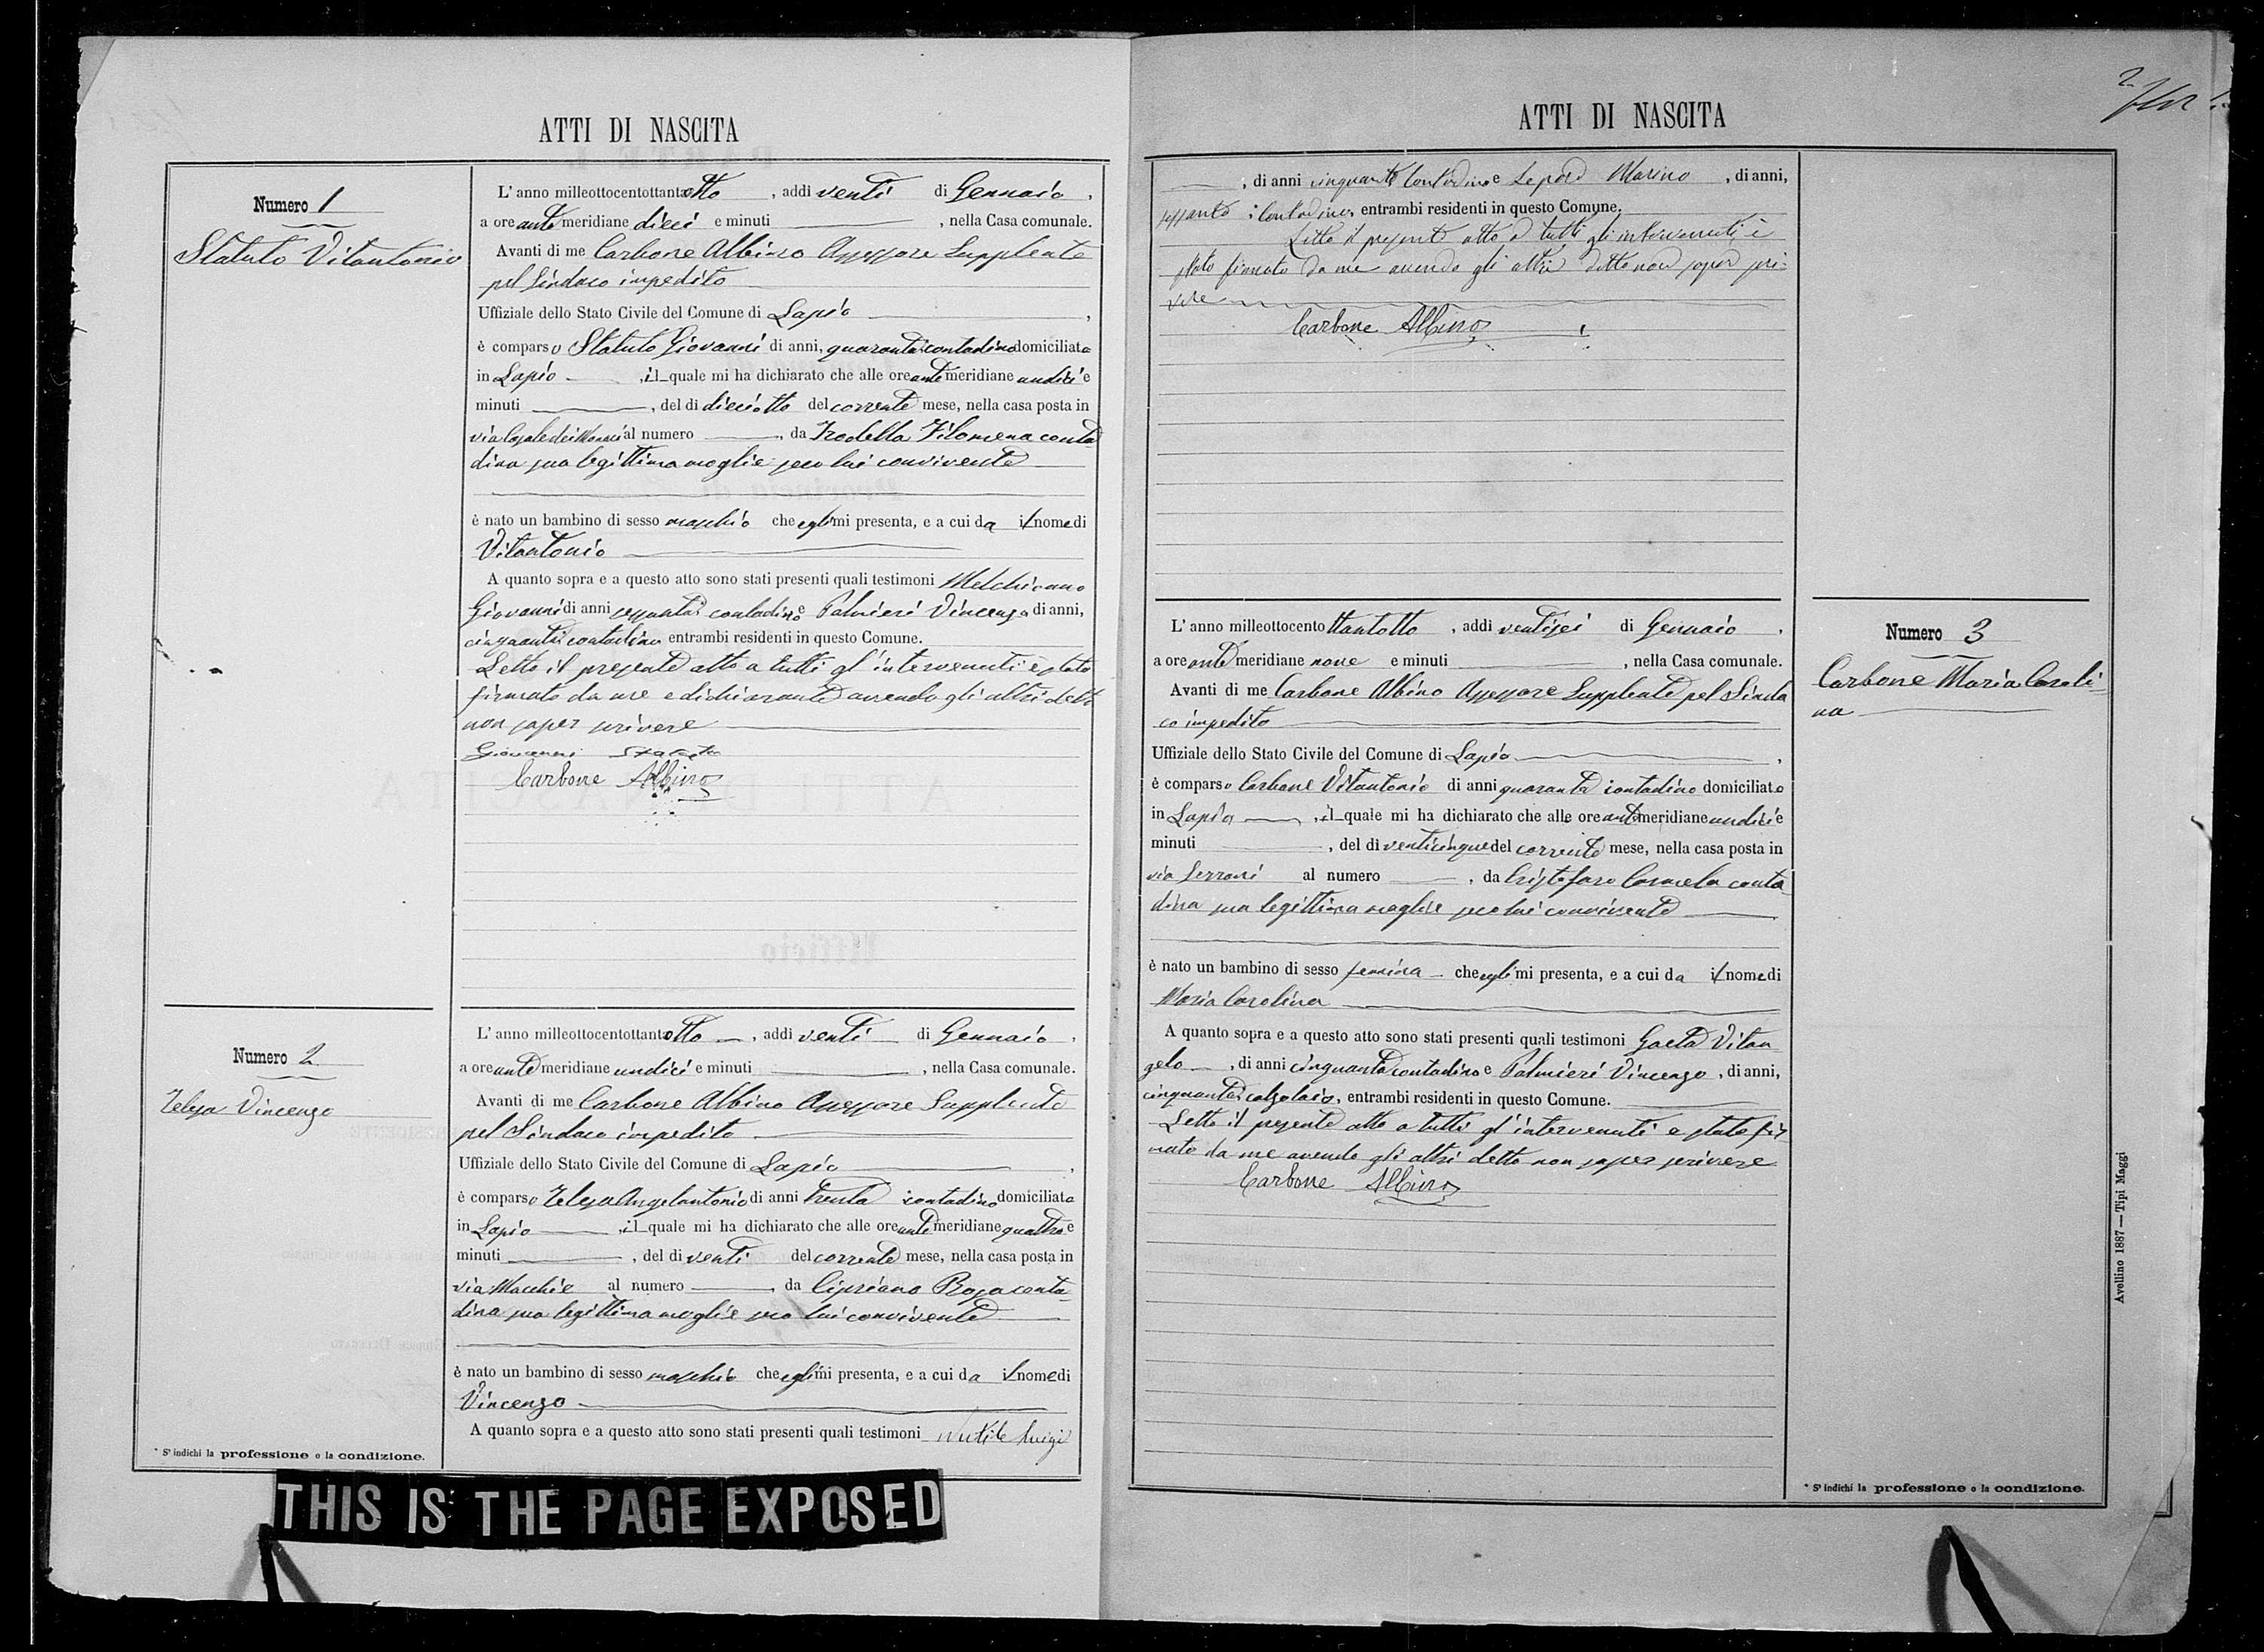 ATTI DI NASCITA
Numero 1
Statuto Vitantonio
L' anno milleottocentottantaotto, addi venti di Gennaio,
a ore ante meridiane dieci e minuti , nella Casa comunale.
Avanti di me Carbone Albino Assessore Supplente
pel Sindaco impedito
Uffiziale dello Stato Civile del Comune di Lapio ,
è comparso Statuto Giovanni di anni, quaranta contadino domiciliato
in Lapio , il quale mi ha dichiarato che alle ore ante meridiane undici e
minuti , del dì dieciotto del corrente mese, nella casa posta in
via Casale dei Monaci al numero , da Trodella Filomena conta
dina sua legittima moglie seco lui convivente
è nato un bambino di sesso maschio che egli mi presenta, e a cui da il nome di
Vitantonio
A quanto sopra e a questo atto sono stati presenti quali testimoni
Giovanni di anni sessanta contadino e Palmieri Vincenzo di anni,
cinquanta contadino entrambi residenti in questo Comune.
Letto il presente atto a tutti gl'intervenuti è stato
firmato da me e dichiarante avendo gli altri detto
non saper scrivere
Giovanni Statuto
Carbone Albino
Numero 2
Telesa Vincenzo
L' anno milleottocentottantaotto , addi venti di Gennaio ,
a ore ante meridiane undici e minuti , nella Casa comunale.
Avanti di me Carbone Albino Assessore Supplente
pel Sindaco impedito
Uffiziale dello Stato Civile del Comune di Lapio ,
è comparso Telesa Angelantonio di anni trenta contadino domiciliato
in Lapio , il quale mi ha dichiarato che alle ore ante meridiane quattro e
minuti , del dì venti del corrente mese, nella casa posta in
via Macchie al numero , da Cipriano Rosa conta
dina sua legittima moglie seco lui convivente
è nato un bambino di sesso maschio che egli mi presenta, e a cui da il nome di
Vincenzo
A quanto sopra e a questo atto sono stati presenti quali testimoni Luigi
* S' indichi la professione o la condizione.
THIS IS THE PAGE EXPOSED
ATTI DI NASCITA
2
, di anni cinquanta Contadino e Lepore Marino , di anni,
sessanta Contadino, entrambi residenti in questo Comune.
Letto il presente atto a tutti gli intervenuti, è
stato firmato da me avendo gli altri detto non saper scri-
vere
Carbone Albino
Numero 3
Carbone Maria Caroli-
na
L' anno milleottocento ttantotto , addi ventisei di Gennaio ,
a ore ante meridiane nove e minuti , nella Casa comunale.
Avanti di me Carbone Albino Assessore Supplente pel Sinda
co impedito
Uffiziale dello Stato Civile del Comune di Lapio ,
è comparso Carbone Vitantonio di anni quaranta contadino domiciliato
in Lapio , il quale mi ha dichiarato che alle ore ante meridiane undici e
minuti , del dì venticinque del corrente mese, nella casa posta in
via Serroni al numero , da Cristofaro Carmela conta
dina sua legittima moglie seco lui convivente
è nato un bambino di sesso femina che egli mi presenta, e a cui da il nome di
Maria Carolina
A quanto sopra e a questo atto sono stati presenti quali testimoni Gaeta Vitan
gelo , di anni cinquanta contadino e Palmieri Vincenzo , di anni,
cinquanta calzolaio, entrambi residenti in questo Comune.
Letto il presente atto a tutti gl'intervenuti e stato fir
mato da me avendo gli altri detto non saper scrivere
Carbone Albino
* S' indichi la professione o la condizione.
Avellino 1887 — Tipi Maggi